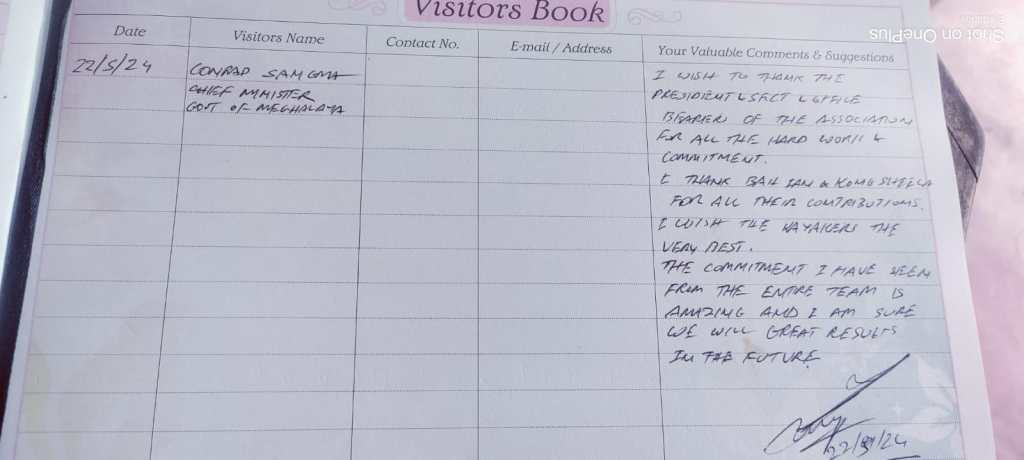 Visitors Book
Shot on OnePlus
Date Visitors Name Contact No. E-mail / Address Your Valuable Comments & Suggestions
22/5/24 CONRAD SANGMA
CHIEF MINISTER
GOVT OF MEGHALAYA
I WISH TO THANK THE
PRESIDENT & SECT & OFFICE
BEARERS OF THE ASSOCIATION
FOR ALL THE HARD WORK &
COMMITMENT.
I THANK BAH IAN & KONG SHEELA
FOR ALL THEIR CONTRIBUTIONS.
I WISH THE KAYAKERS THE
VERY BEST.
THE COMMITMENT I HAVE SEEN
FROM THE ENTIRE TEAM IS
AMAZING AND I AM SURE
WE WILL GREAT RESULTS
IN THE FUTURE
22/5/24